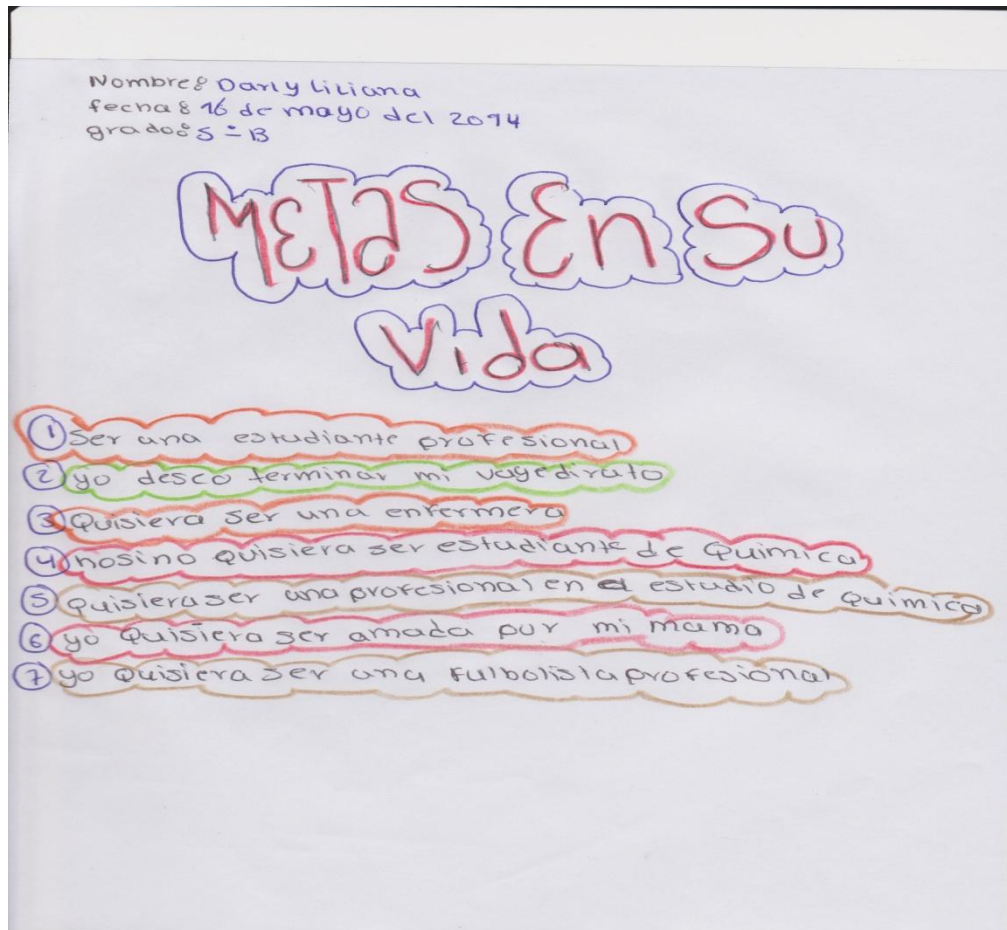 Nombre: Darly Liliana
fecha: 16 de mayo del 2014
grado: 5-B
METas En Su
Vida
1 Ser una estudiante profesional
2 yo deseo terminar mi vagedirato
3 Quisiera ser una enfermera
4 nosino quisiera ser estudiante de Quimica
5 quisiera ser una profesional en el estudio de quimica
6 yo Quisiera ser amada por mi mama
7 yo quisiera ser una fulbolista profesional